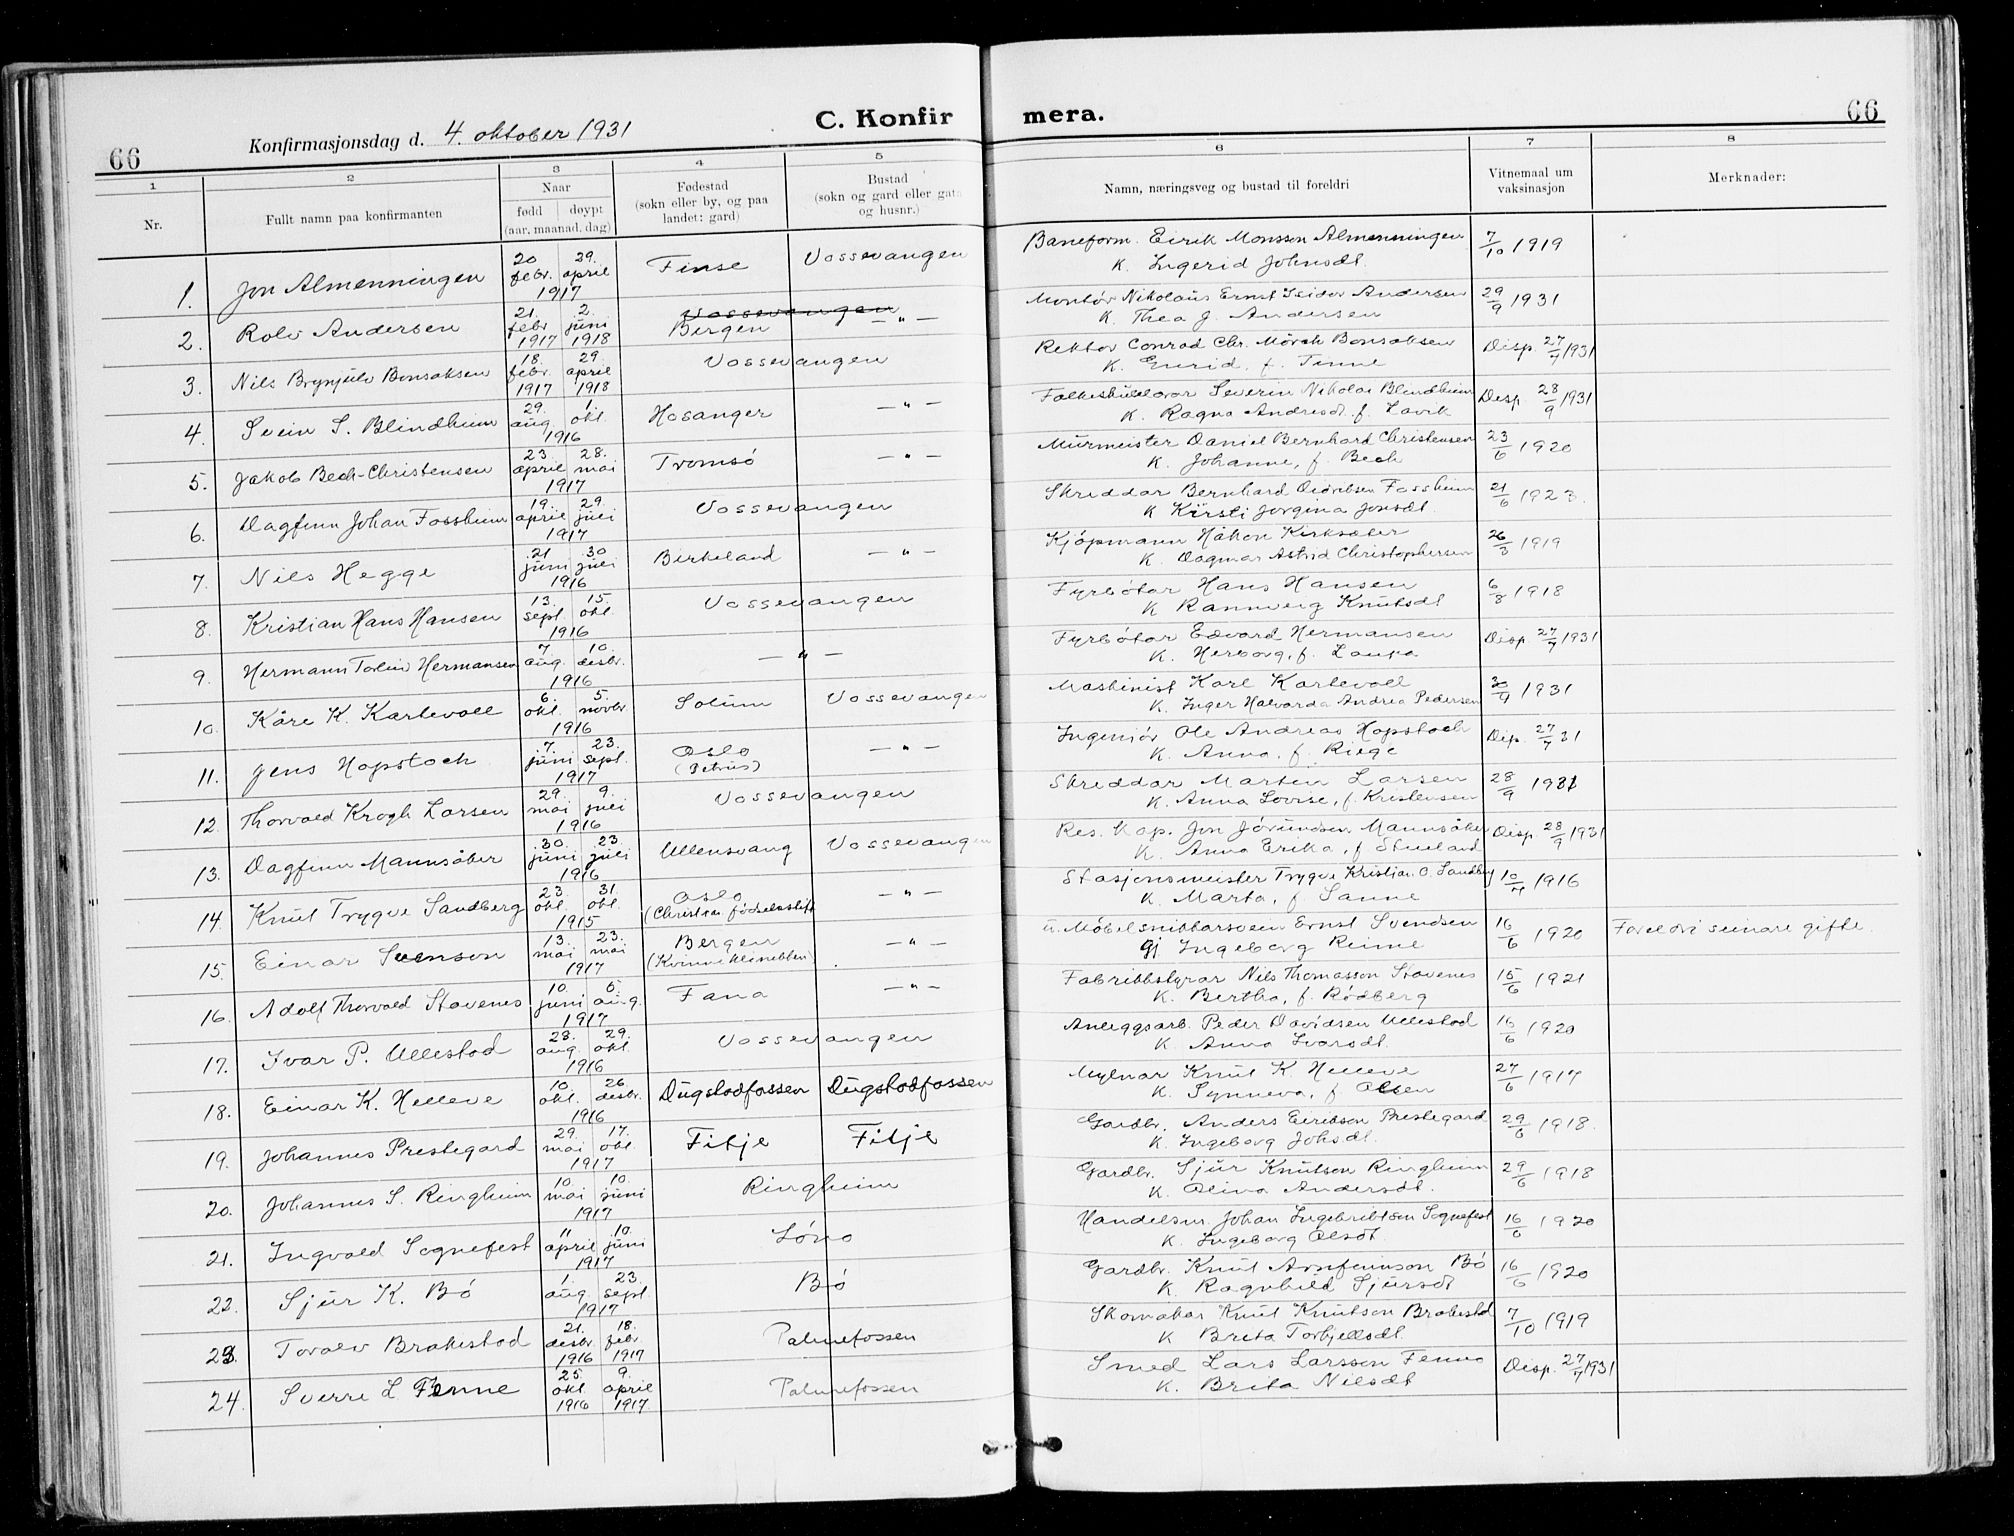 66
Konfirmasjonsdag d. 4. oktober 1931
C. Konfir mera.
66
1 2 3 4 5 6 7 8
Nr.
Fullt namn paa konfirmanten
Naar
fødd døypt
(aar, maanad, dag)
Fødestad
(sokn eller by, og paa
landet: gard)
Bustad
(sokn og gard eller gata
og husnr.)
Namn, næringsveg og bustad til foreldri
Vitnemaal um
vaksinasjon
Merknader:
1. Jon Almenningen 20 febr. 29. april 1917 Finse Vossevangen Baneform. Eirik Monsson Almenningen 7/10 1919
K. Ingerid Johnsdt.
2. Rolv Andersen 21. febr. 1917 2. juni 1918 Vossevangen Bergen — " — Montør Nikolaus Ernst Isidor Andersen 29/9 1931
K. Thea J. Andersen
3. Nils Brynjulv Bonsaksen 18. febr. 1917 29. april 1918 Vossevangen Rektor Conrad Chr. Mørch Bonsaksen Disp. 27/7 1931
K. Gurid, f. Finne
4. Svein S. Blindheim 29. aug. 1. okt. 1916 Hosanger — " — Folkeskulelærar Severin Nikolai Blindheim Disp. 28/9 1931
K. Ragna Andresdt. f. Lavik
5. Jakob Bech-Christensen 23. april 28. mai 1917 Tromsö — " — Murmeister Daniel Bernhard Christensen 23/6 1920
K. Johanne, f. Bech
6. Dagfinn Johan Fossheim 19. april 29. juli 1917 Vossevangen Skreddar Bernhard Fossheim 21/6 1923.
K Kirsti Jorgina Jonsdt.
7. Nils Hegge 21 juni 30 juli 1916 Birkeland — " — Kjöpmann Håkon Kirksæter 26/3 1919
K. Dagmar Astrid Christophersen
8. Kristian Hans Hansen 13. sept. 15. okt. 1916 Vossevangen Fyrbötar Hans Hansen 6/8 1918
K Rannveig Knutsdt
9. Hermann Torleiv Hermansen 7 aug. 10. desbr. 1916 — " — Fyrbötar Edvard Hermansen Disp. 27/7 1931
K. Herborg, f.
10. Kåre K. Karlevoll 6. okt. 5. novbr. 1916 Solum Vossevangen Maskinist Karl Karlevoll 30/4 1931
K. Inger Halvarda Andrea Pedersen
11. Jens Hopstock 7. juni 23. sept. 1917 Oslo (Petrus) — " — Ingeniör Ole Andreas Hopstock Disp. 27/7 31
K. Anna, f. Riege
12. Thorvald Krogh Larsen 29. mai 9. juli 1916 Vossevangen Skreddar Martin Larsen 28/9 1931
K. Anna Lovise, f. Kristensen
13. Dagfinn Mannsåker 30. juni 23 juli 1916 Ullensvang Vossevangen Res. Kap. Jon Jörundsen Mannsåker Disp. 28/9 1931
K. Anna Erika, f
14. Knut Trygve Sandberg 23. okt. 31. okt. 1915 Oslo (Christian fødselsstift — " — Stasjonsmeister Trygve Kristian O. Sandberg 10/4 1916
K. Marta, f. Sanne
15. Einar Svenson 13. mai 23. mai 1917 Bergen (Kvinneklinikken) — " — u. Möbelsnikkarsvein Ernst Svendsen 16/6 1920 Foreldri seinare gifte
gj Ingeborg Reime
16. Adolf Thorvald Stavenes 10. juni 5. aug. 1917 Fana — " — Fabrikkstyrar Nils Thomasson Stavenes 15/6 1921
K. Bertha, f. Rödberg
17. Ivar P. Ullestad 28. aug. 29. okt. 1916 Vossevangen Anleggsarb. Peder Davidsen Ullestad 16/6 1920
K. Anna Ivarsdt.
18. Einar K. Helleve 10. okt. 26. desbr. 1916 Dugstadfossen Dugstadfossen Mylnar Knut K. Helleve 27/6 1917
K. Synneva, f Olsen
19. Johannes Prestegard 29. mai 17. okt. 1917 Fitje Fitje Gardbr. Anders Eirikson Prestegard 29/6 1918.
K. Ingeborg Johsdt.
20. Johannes S. Ringheim 10. mai 10. juni 1917 Ringheim Gardbr. Sjur Knutson Ringheim 29/6 1918
K. Olina Andersdt.
21. Ingvald Sognefest 11 april 10. juni 1917 Löno Handelsm. Johan Ingebriktsen Sognefest 16/6 1920
K. Ingeborg Olsdt.
22. Sjur K. Bö 1. aug. 23. sept 1917 Bö Gardbr. Knut Arnfinnson Bö 16/6 1920
K. Ragnhild Sjursdt
23. Toralv Brakestad 21. desbr. 1916 18. febr. 1917 Palmefossen Skomakar Knut Knutson Brakestad 7/10 1919
K Brita Torkjellsdt.
24. Sverre L Fenne 25 okt 1916 9. april 1917. Palmefossen Smed Lars Larsson Fenno Disp. 27/7 1931
K. Brita Nilsdt